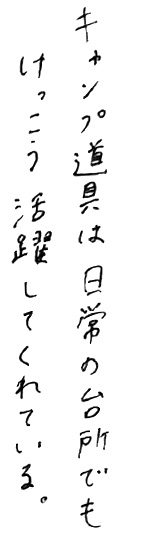 キャンプ道具は日常の台所でも
けっこう活躍してくれている。